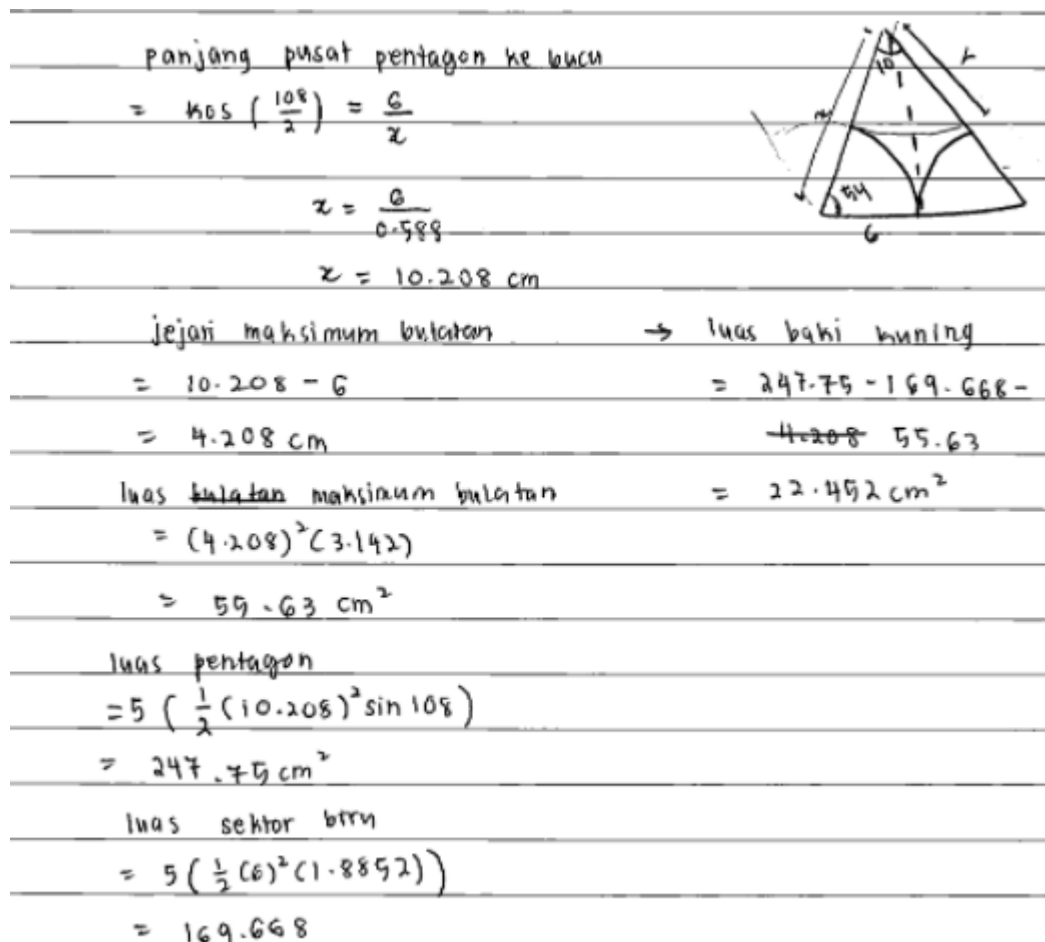 panjang pusat pentagon ke bucu
= kos (108/2) = 6/x
x = 6/0.588
x = 10.208 cm
jejari maksimum bulatan
= 10.208 - 6
= 4.208 cm
luas bulatan maksimum bulatan
= (4.208)² (3.142)
= 55.63 cm²
luas pentagon
= 5 (1/2 (10.208)² sin 108)
= 247.75 cm²
luas sektor biru
= 5 (1/2 (6)² (1.8852))
= 169.668
→ luas baki kuning
= 247.75 - 169.668 -
4.208 55.63
= 22.452 cm²
10
r
x
54
6